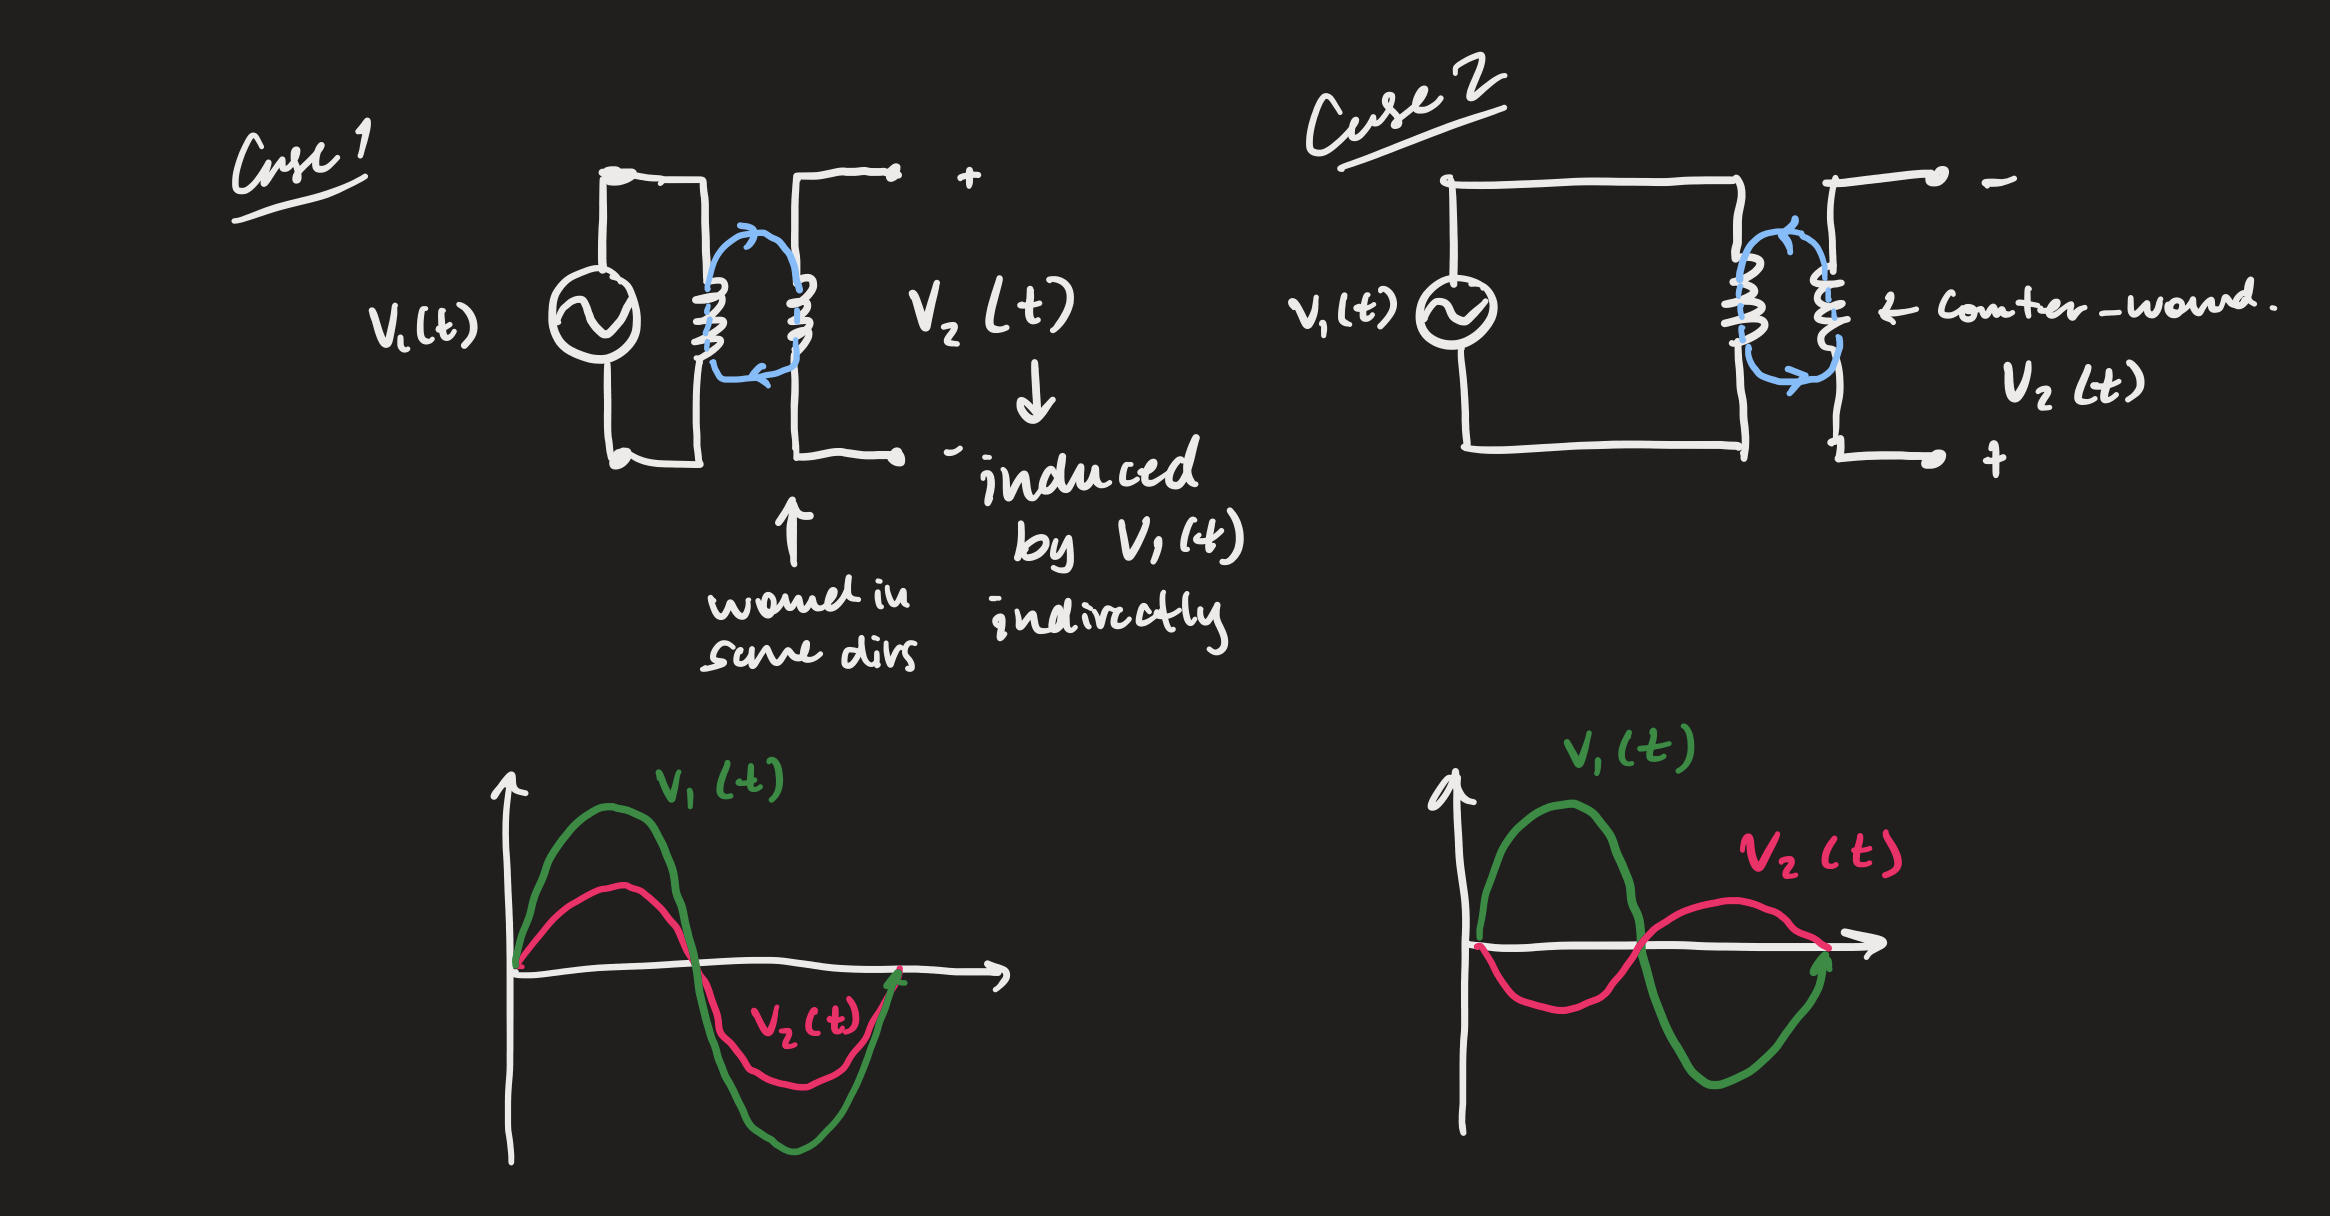 Case 1
V₁(t)
+
V₂(t)
-
induced
by V₁(t)
indirectly
wound in
same dirs
Case 2
V₁(t)
-
← Counter-wound.
V₂(t)
+
V₁(t)
V₂(t)
V₁(t)
V₂(t)